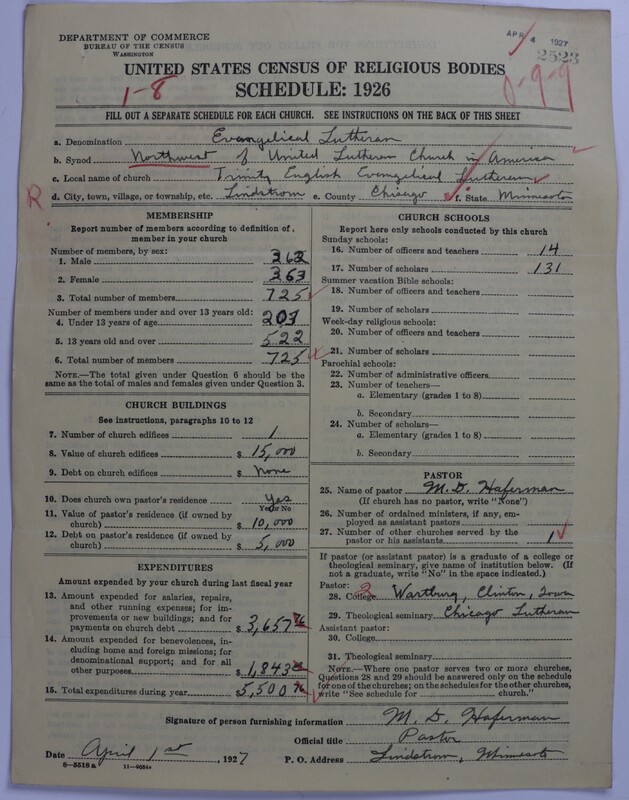 DEPARTMENT OF COMMERCE
BUREAU OF THE CENSUS
WASHINGTON
APR 4 1927
2523
UNITED STATES CENSUS OF RELIGIOUS BODIES
1-8
SCHEDULE: 1926
0-9-9
FILL OUT A SEPARATE SCHEDULE FOR EACH CHURCH. SEE INSTRUCTIONS ON THE BACK OF THIS SHEET
a. Denomination Evangelical Lutheran
b. Synod Northwest of United Lutheran Church in America
c. Local name of church Trinity English Evangelical Lutheran
R d. City, town, village, or township, etc. Lindstrom e. County Chicago f. State Minnesota
MEMBERSHIP
Report number of members according to definition of member in your church
Number of members, by sex:
1. Male 362
2. Female 363
3. Total number of members 725
Number of members under and over 13 years old:
4. Under 13 years of age 203
5. 13 years old and over 522
6. Total number of members 725
NOTE.—The total given under Question 6 should be
same as the total of males and females given under Question 3.
CHURCH BUILDINGS
See instructions, paragraphs 10 to 12
7. Number of church edifices 1
8. Value of church edifices $ 15,000
9. Debt on church edifices $ None
10. Does church own pastor's residence Yes
Yes or No
11. Value of pastor's residence (if owned by
church) $ 10,000
12. Debt on pastor's residence (if owned by
church) $ 5,000
EXPENDITURES
Amount expended by your church during last fiscal year
13. Amount expended for salaries, repairs,
and other running expenses; for im-
provements or new buildings; and for
payments on church debt $ 3,657
14. Amount expended for benevolences, in-
cluding home and foreign missions; for
denominational support; and for all
other purposes $ 1,843
15. Total expenditures during year $ 5,500
CHURCH SCHOOLS
Report here only schools conducted by this church
Sunday schools:
16. Number of officers and teachers 14
17. Number of scholars 131
Summer vacation Bible schools:
18. Number of officers and teachers
19. Number of scholars
Week-day religious schools:
20. Number of officers and teachers
21. Number of scholars
Parochial schools:
22. Number of administrative officers
23. Number of teachers—
a. Elementary (grades 1 to 8)
b. Secondary
24. Number of scholars—
a. Elementary (grades 1 to 8)
b. Secondary
PASTOR
25. Name of pastor M. D. Haferman
(If church has no pastor, write "None")
26. Number of ordained ministers, if any, em-
ployed as assistant pastors
27. Number of other churches served by the
pastor or his assistants 1
If pastor (or assistant pastor) is a graduate of a college or
theological seminary, give name of institution below. (If
not a graduate, write "No" in the space indicated.)
Pastor:
28. College Wartburg, Clinton, Iowa
29. Theological seminary Chicago Lutheran
Assistant pastor:
30. College
31. Theological seminary
NOTE.—Where one pastor serves two or more churches,
Questions 28 and 29 should be answered only on the schedule
for one of the churches; on the schedules for the other churches,
write "See schedule for church."
Signature of person furnishing information M. D. Haferman
Official title Pastor
Date April 1st, 1927 P. O. Address Lindstrom, Minnesota
8-5518 a